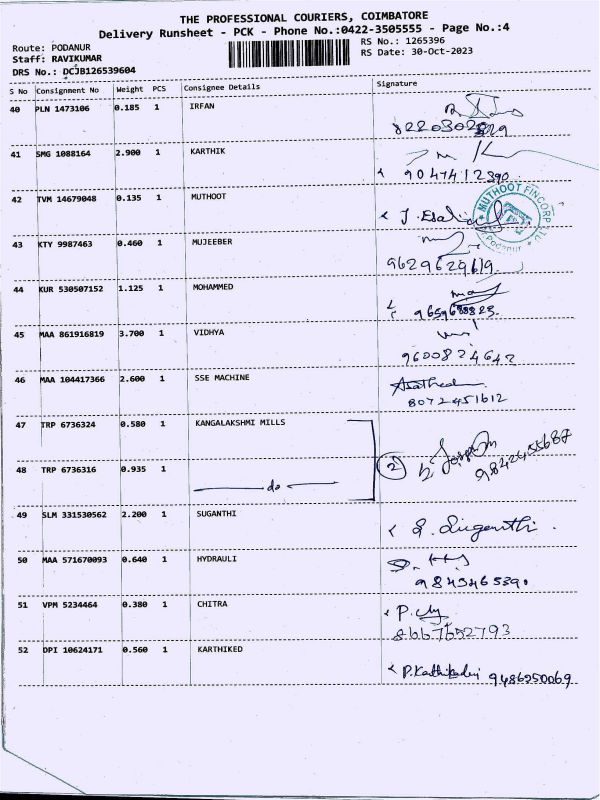 THE PROFESSIONAL COURIERS, COIMBATORE
Delivery Runsheet - PCK - Phone No.:0422-3505555 - Page No.:4
Route: PODANUR
RS No.: 1265396
Staff: RAVIKUMAR
RS Date: 30-Oct-2023
DRS No.: DCJB126539604
S No Consignment No Weight PCS Consignee Details Signature
40 PLN 1473106 0.185 1 IRFAN
41 SMG 1088164 2.900 1 KARTHIK
9047412390
42 TVM 14679048 0.135 1 MUTHOOT
MUTHOOT FINCORP LTD
Podanur
43 KTY 9987463 0.460 1 MUJEEBER
9629629619
44 KUR 530507152 1.125 1 MOHAMMED
45 MAA 861916819 3.700 1 VIDHYA
9600824642
46 MAA 104417366 2.600 1 SSE MACHINE
8072451612
47 TRP 6736324 0.580 1 KANGALAKSHMI MILLS
48 TRP 6736316 0.935 1 do
2
9842455687
49 SLM 331530562 2.200 1 SUGANTHI
S. Suganthi.
50 MAA 571670093 0.640 1 HYDRAULI
9843465390
51 VPM 5234464 0.380 1 CHITRA
8667652793
52 OPI 10624171 0.560 1 KARTHIKED
9486250069